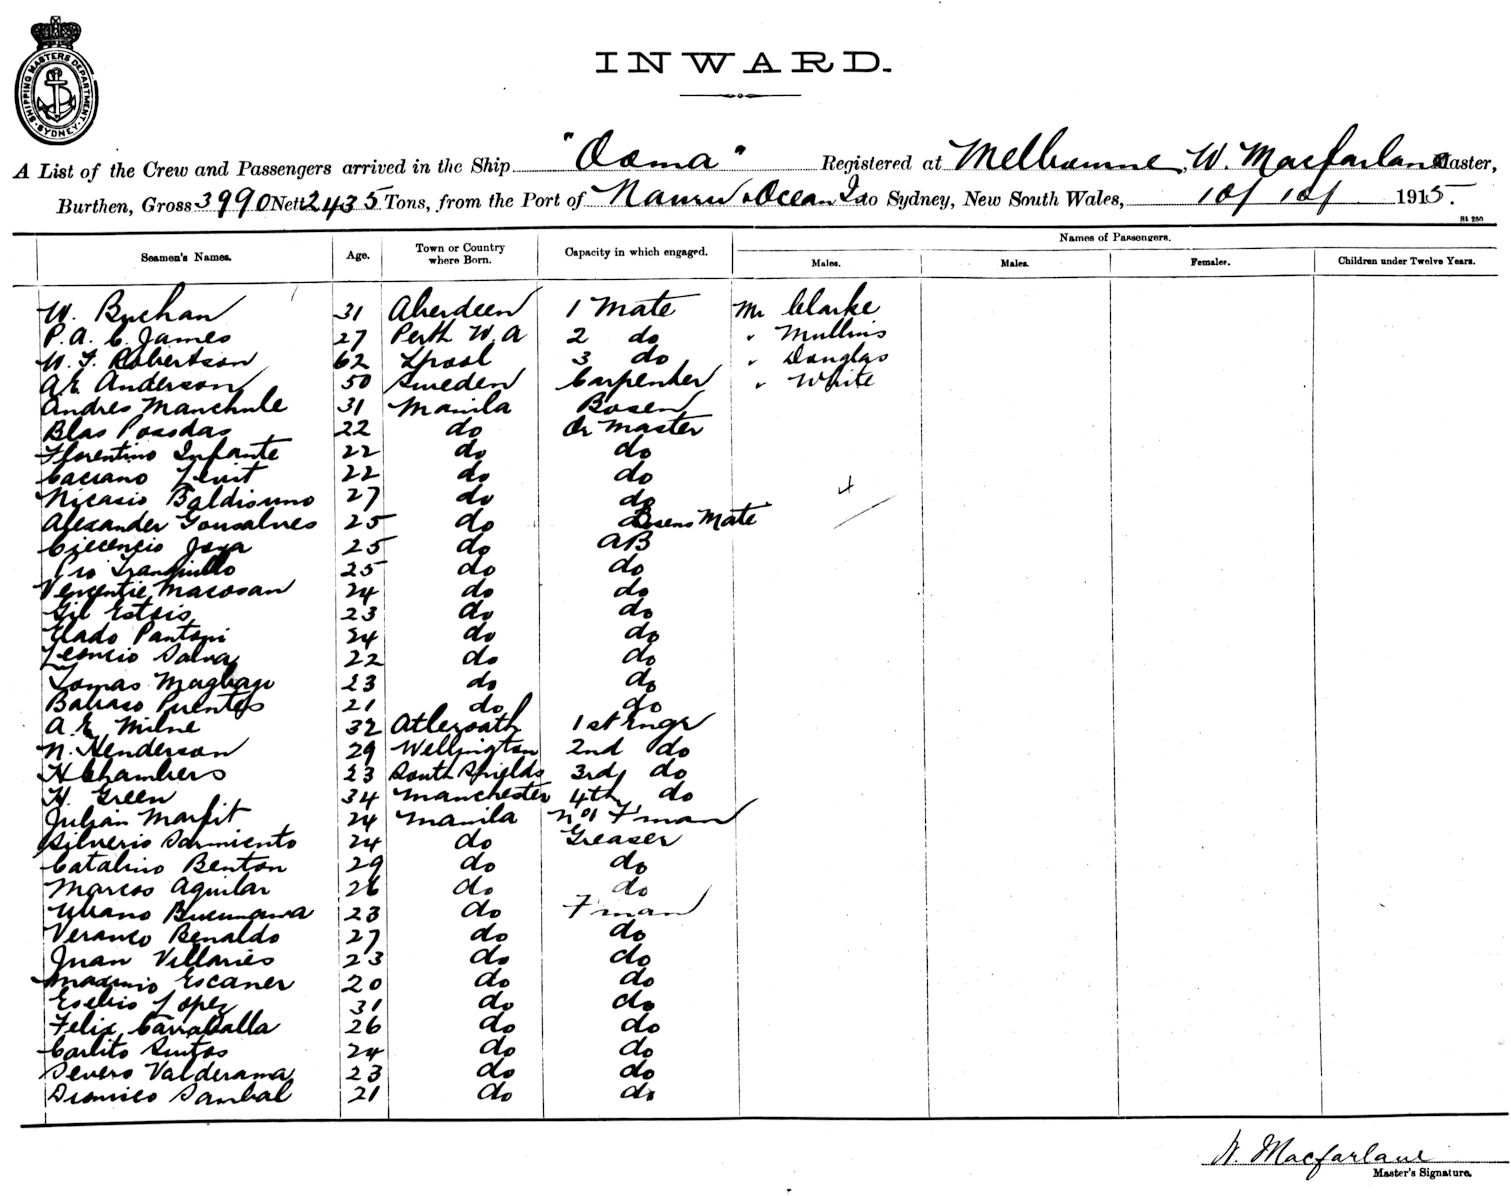 SHIPPING MASTERS DEPARTMENT. SYDNEY.
INWARD.
A List of the Crew and Passengers arrived in the Ship "Ooma" Registered at Melbourne, W. Macfarlane Master,
Burthen, Gross 3990 Nett 2435 Tons, from the Port of Nauru & Ocean Is to Sydney, New South Wales, 10/10/ 1915.
St 250
Seamen's Names. Age. Town or Country where Born. Capacity in which engaged. Names of Passengers.
Males. Males. Females. Children under Twelve Years.
W. Buchan 31 Aberdeen 1 Mate Mr Clarke
P. A. C. James 27 Perth W. A 2 do " Mullins
W. F. Robertson 62 Lpool 3 do " Douglas
A. E. Anderson 50 Sweden Carpenter " White
Andres Manchule 31 Manila Bosen
Blas Posodas 22 do Qr Master
Florentino Infante 22 do do
Caciano 22 do do
Nicasio 27 do do
4
Alexander Gonsalves 25 do Bosens Mate
Joya 25 do AB
25 do do
Macosan 24 do do
Gil 23 do do
24 do do
Leoncio Salva 22 do do
Tomas 23 do do
Puentes 21 do do
A. E. Milne 32 1st Engr
N. Henderson 29 Wellington 2nd do
H Chambers 23 South Shields 3rd do
H. Green 34 Manchester 4th do
Julian Marfit 24 Manila No1 F'man
Silverio Sarmiento 24 do Greaser
Catalino Benton 29 do do
Marcos Aquilar 26 do do
23 do F'man
Benaldo 27 do do
Juan Villaries 23 do do
Maximio Escaner 20 do do
Esebio Lopez 31 do do
Felix Carraballa 26 do do
Carlito Santos 24 do do
Severo Valderama 23 do do
Sambal 21 do do
W. Macfarlane
Master's Signature.